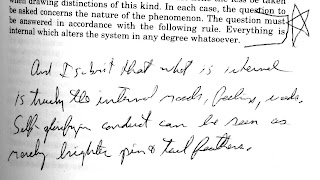 when drawing distinctions of this kind. In each case, the question to
be asked concerns the nature of the phenomenon. The question must
be answered in accordance with the following rule. Everything is
internal which alters the system in any degree whatsoever.
And I submit that what is internal
is truly the internal needs, feelings, wants.
Self-glorifying conduct can be seen as
merely brighter pin & tail feathers.